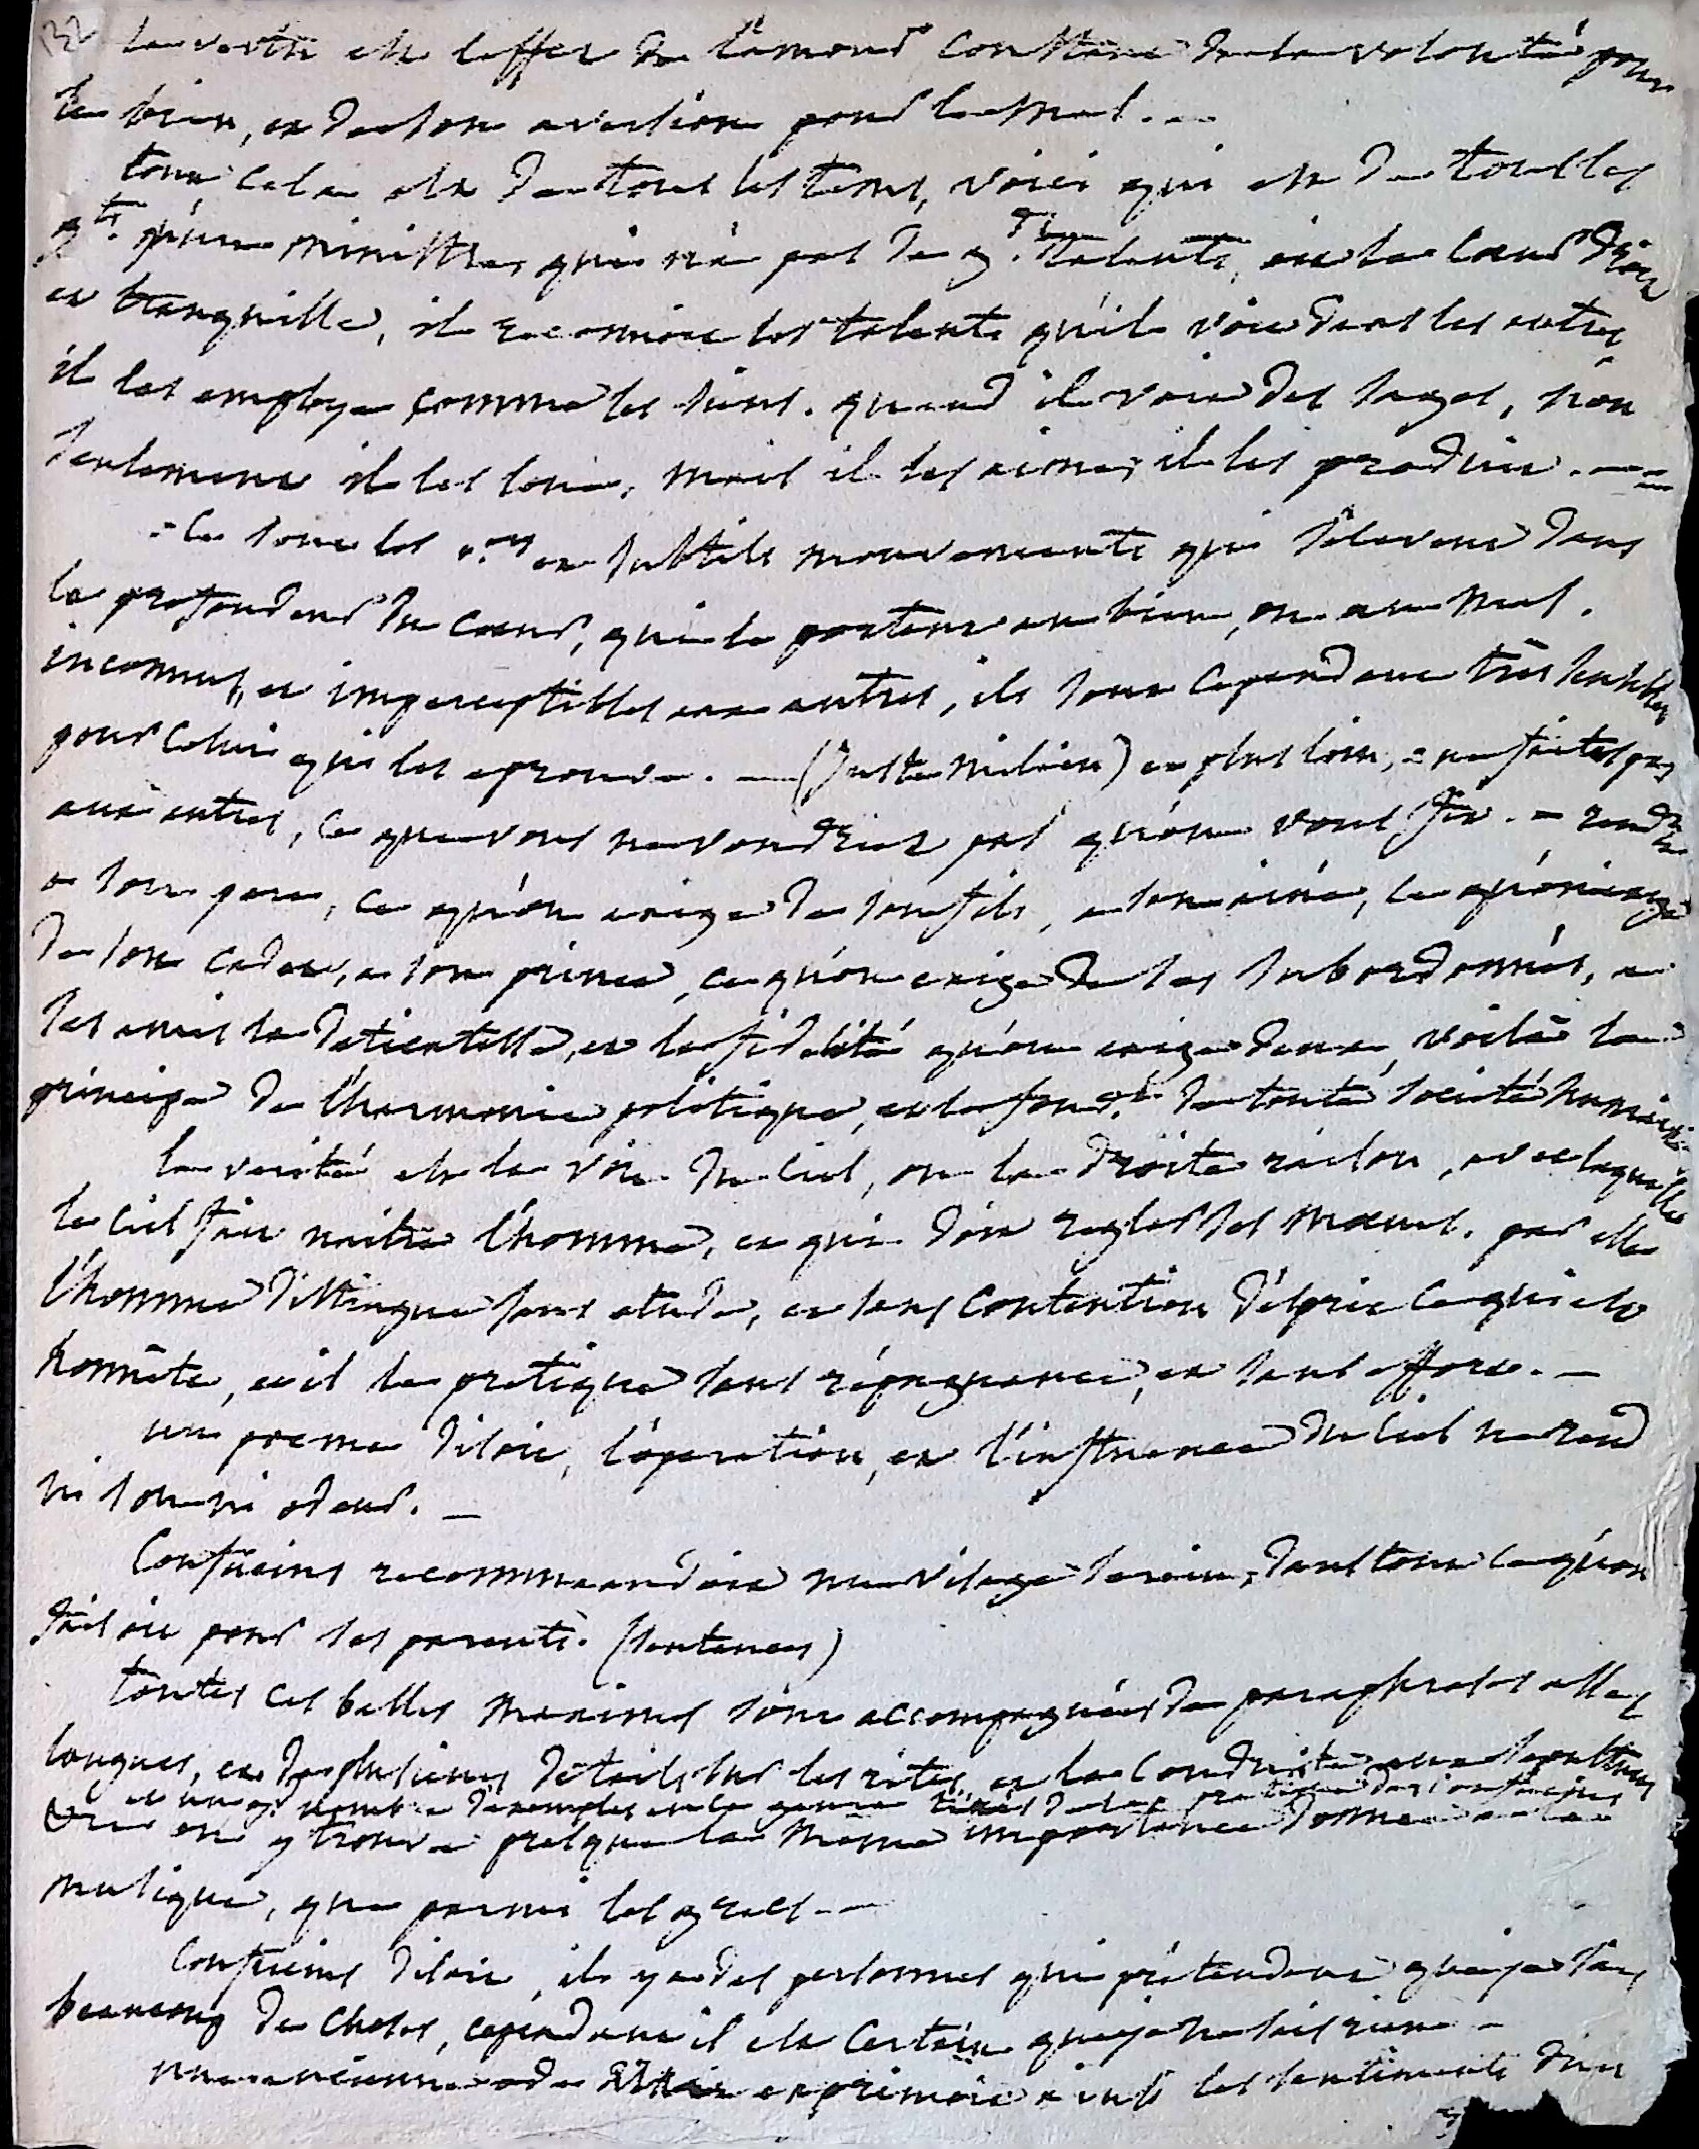 132 la vertu est l'effet de l'amour constant de la volonté pour
le bien, et de son aversion pour le mal. —
tout cela est de tous les tems, voici qui est de tous les
qu'un ministre, qui n'a pas de gds talents, ait le cœur droit
et tranquille, il reconnoit les talents qu'il voit dans les autres,
il les employe comme les siens. quand il voit des sages, non
seulement il les loue, mais il les aime, il les produit. —
= ce sont les et subtils mouvements qui s'elevent dans
la profondeur du cœur, qui le portent au bien, ou au mal.
inconnus, et imperceptibles aux autres, ils sont cependant très sensibles
pour celui qui les eprouve. — (Juste milieu) et plus loin, = ne faites pas
aux autres, ce que vous ne voudriez pas qu'on vous fit. = rendre
a son pere, ce qu'on exige de son fils, a son ainé, ce qu'on exige
de son cadet, a son prince, ce qu'on exige de ses subordonnés, a
ses amis la déticatesse, et la fidélité qu'on exige d'eux, voilà le
principe de l'harmonie politique, et le fondt. de toute société humaine
la verité est la voix du Ciel, ou la droite raison, avec laquelle
le Ciel fait naitre l'homme, et qui doit regler ses mœurs. par elle
l'homme distingue sans etude, et sans contention d'esprit ce qui est
honnête, et il le pratique sans répugnance, et sans effort. —
un poeme disoit, l'operation, et l'influence du Ciel ne rend
ni son ni odeur. —
Confucius recommandoit un visage serein, dans tout ce qu'on
faisoit pour ses parents. (sentences)
toutes ces belles maximes sont accompagnées de paraphrases assez
longues, et de plusieurs détails sur les rites, et la conduite aux sepultures
et un gd nombre d'exemples en ce genre tirés de la pratique de Confucius
on y trouve presque la même importance donnée a la
musique, que parmi les grecs. —
Confucius disoit, il y a des personnes qui prétendent que je sais
beaucoup de choses, cependant il est certain que je ne sais rien. —
une ancienne ode exprimoit ainsi les sentiments d'un